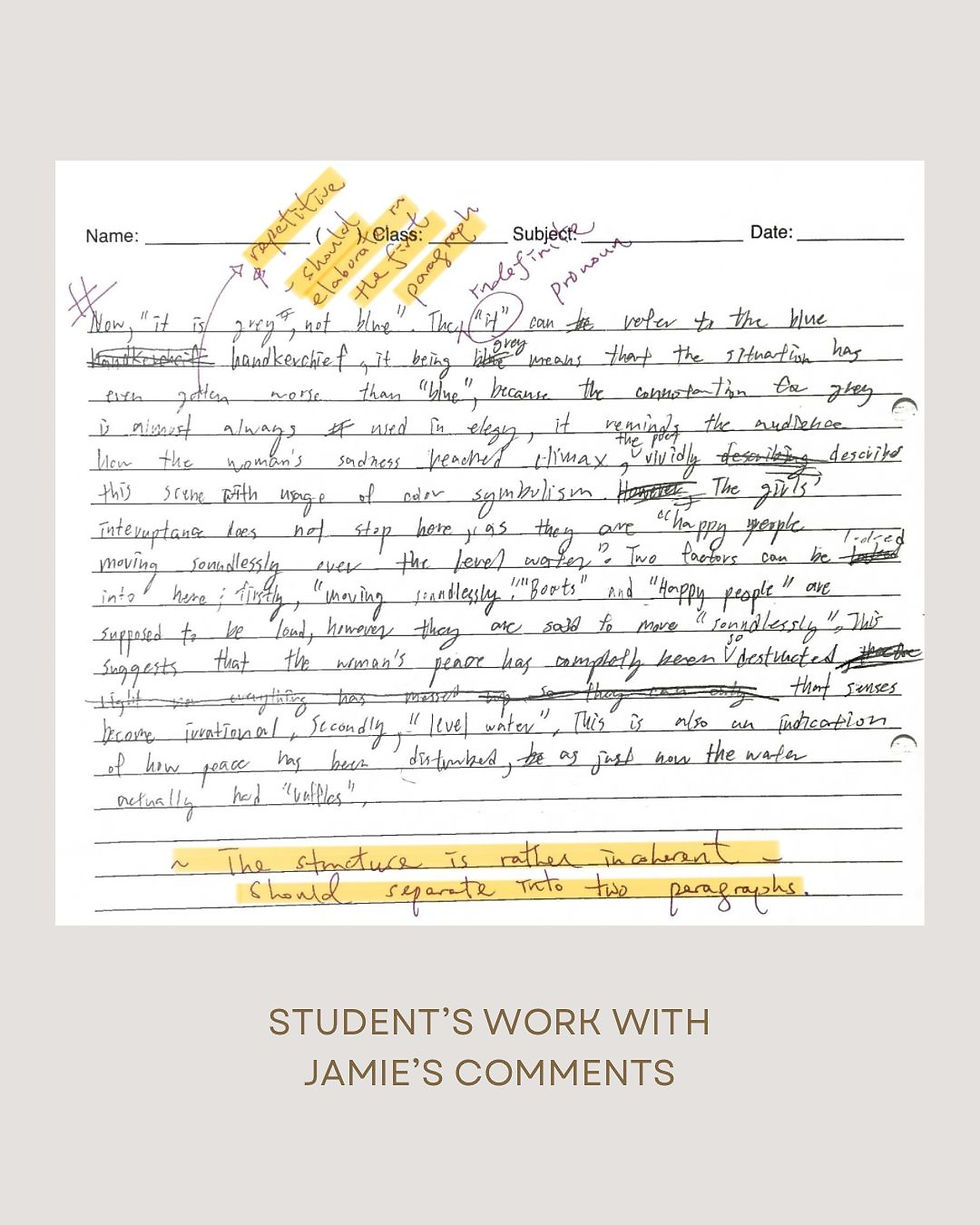 repetitive
- should
elaborate in
the first
paragraph
indefinite
pronoun
Name: ( ) Class: Subject: Date:
#
Now, "it is grey", not blue". The "it" can be refer to the blue
handkerchief handkerchief, it being blue grey means that the situation has
even gotten worse than "blue", because the connotation for grey
is almost always used in elegy, it reminds the audience
how the woman's sadness reached climax, the poet vividly describing described
this scene with usage of color symbolism. However The girls'
interuptance does not stop here, as they are "happy people
moving soundlessly over the level water". Two factors can be looked
into here; firstly, "moving soundlessly". "Boots" and "Happy people" are
supposed to be loud, however they are said to move "soundlessly", This
suggests that the woman's peace has completly been so destructed
right now everything has messed up so they can only that senses
become irrational, Secondly, "level water", This is also an indication
of how peace has been disturbed, be as just now the water
actually had "ruffles",
~ The structure is rather incoherent -
should separate into two paragraphs.
STUDENT'S WORK WITH
JAMIE'S COMMENTS